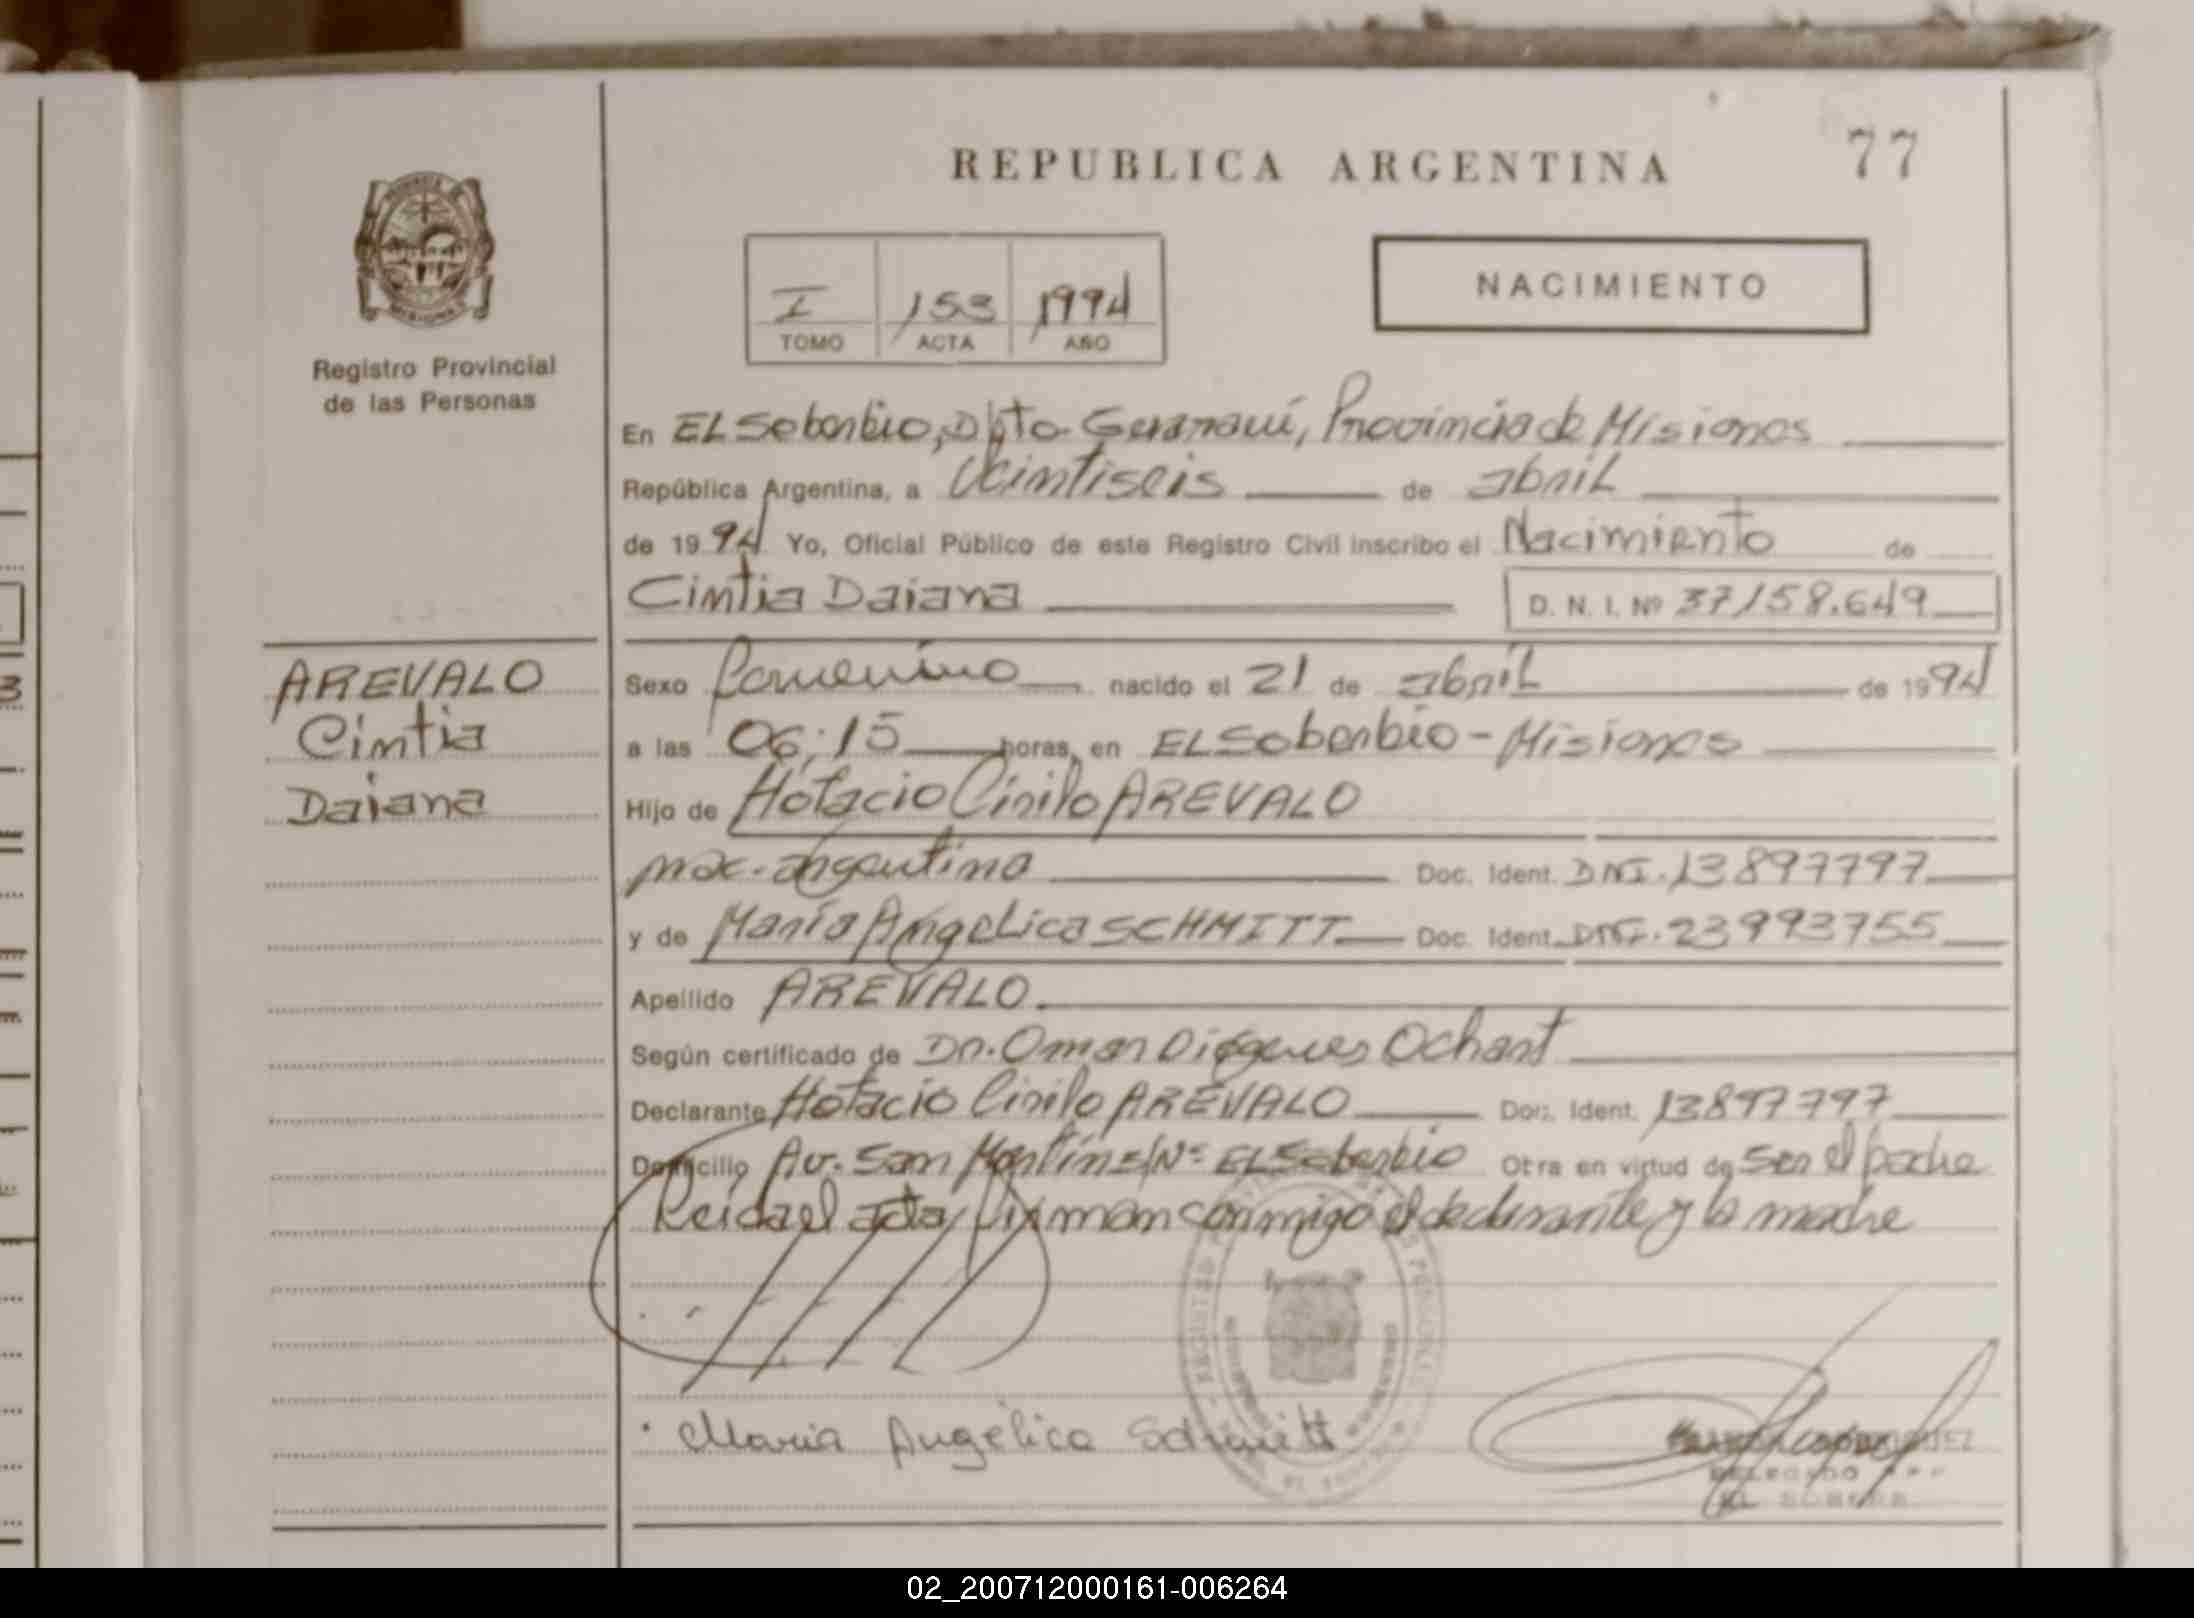 77
REPUBLICA ARGENTINA
I 153 1994
TOMO ACTA AÑO
NACIMIENTO
Registro Provincial
de las Personas
En EL Soberbio, Dpto Guaraní, Provincia de Misiones
República Argentina, a Veintiseis de abril
de 1994 Yo, Oficial Público de este Registro Civil inscribo el Nacimiento de
Cintia Daiana D. N. I. Nº 37158.649
AREVALO
Cintia
Daiana
Sexo femenino nacido el 21 de abril de 1994
a las 06:15 horas, en EL Soberbio - Misiones
Hijo de Horacio Cirilo AREVALO
nac. argentina Doc. Ident. DNI. 13897797
y de María Angelica SCHMITT Doc. Ident. DNI. 23993755
Apellido AREVALO
Según certificado de Dr. Omar Diógenes Ochast
Declarante Horacio Cirilo AREVALO Doc. Ident. 13897797
Domicilio Av. San Martín s/Nº EL Soberbio Otra en virtud de ser el padre
Leida el acta, firman conmigo el declarante y la madre
Maria Angélica Schmitt
DELEGADO
02_200712000161-006264